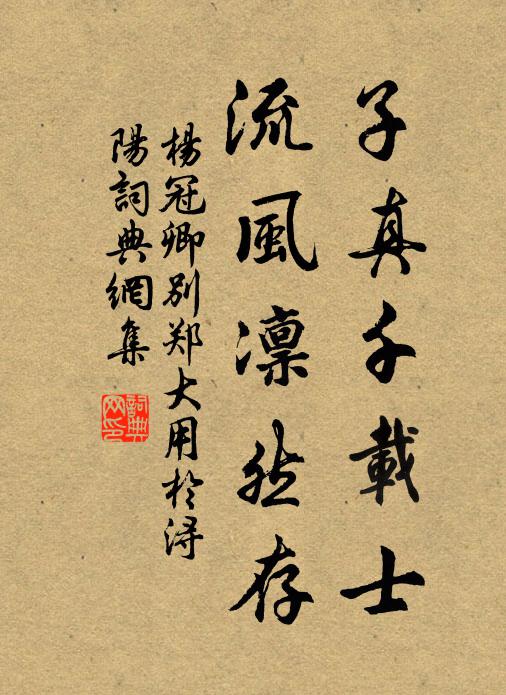 子真千載士
流風凛然存
楊冠卿別郑大用於浔
陽詞典網集
詞典
网印